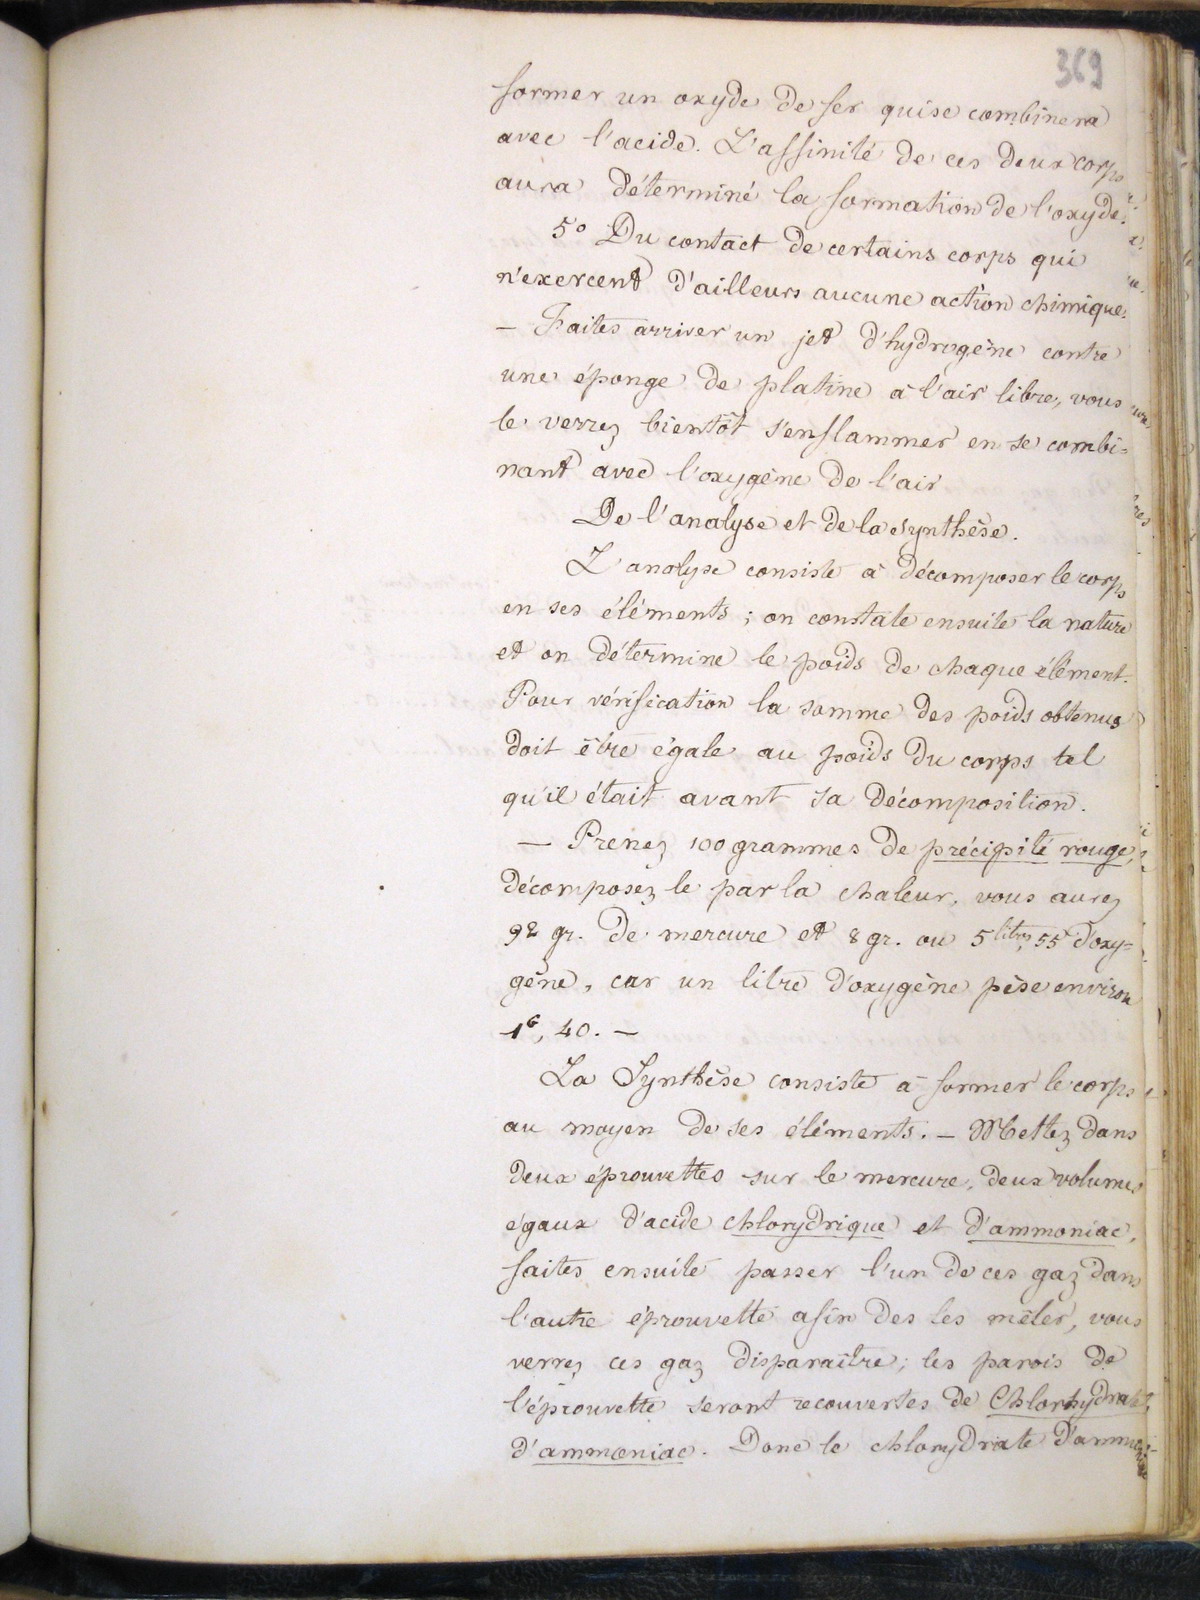 369
former un oxyde de fer qui se combinera
avec l'acide. L'affinité de ces deux corps
aura déterminé la formation de l'oxyde.
5° Du contact de certains corps qui
n'exercent d'ailleurs aucune action chimique.
— Faites arriver un jet d'hydrogène contre
une éponge de platine à l'air libre, vous
le verrez bientôt s'enflammer en se combi=
nant avec l'oxygène de l'air
De l'analyse et de la synthèse.
L'analyse consiste à décomposer le corps
en ses éléments ; on constate ensuite la nature
et on détermine le poids de chaque élément.
Pour vérification la somme des poids obtenus
doit être égale au poids du corps tel
qu'il était avant sa décomposition.
— Prenez 100 grammes de précipité rouge,
décomposez le par la chaleur, vous aurez
92 gr. de mercure et 8 gr. ou 5 litres, 55 d'oxy=
gène, car un litre d'oxygène pèse environ
1G, 40. —
La Synthèse consiste à former le corps
au moyen de ses éléments. — Mettez dans
deux éprouvettes sur le mercure, deux volumes
égaux d'acide chlorydrique et d'ammoniac,
faites ensuite passer l'un de ces gaz dans
l'autre éprouvette afin des les mêler, vous
verrez ces gaz disparaître ; les parois de
l'éprouvette seront recouvertes de Chlorhydrate
d'ammoniac. Donc le chlorydrate d'ammoniac